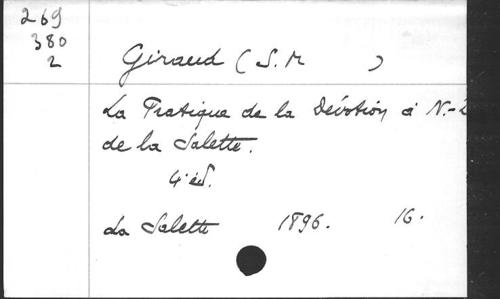 269
380
2
Giraud (S. M )
La Pratique de la Dévotion à N.-D
de la Salette.
4e éd.
La Salette 1896. 16.